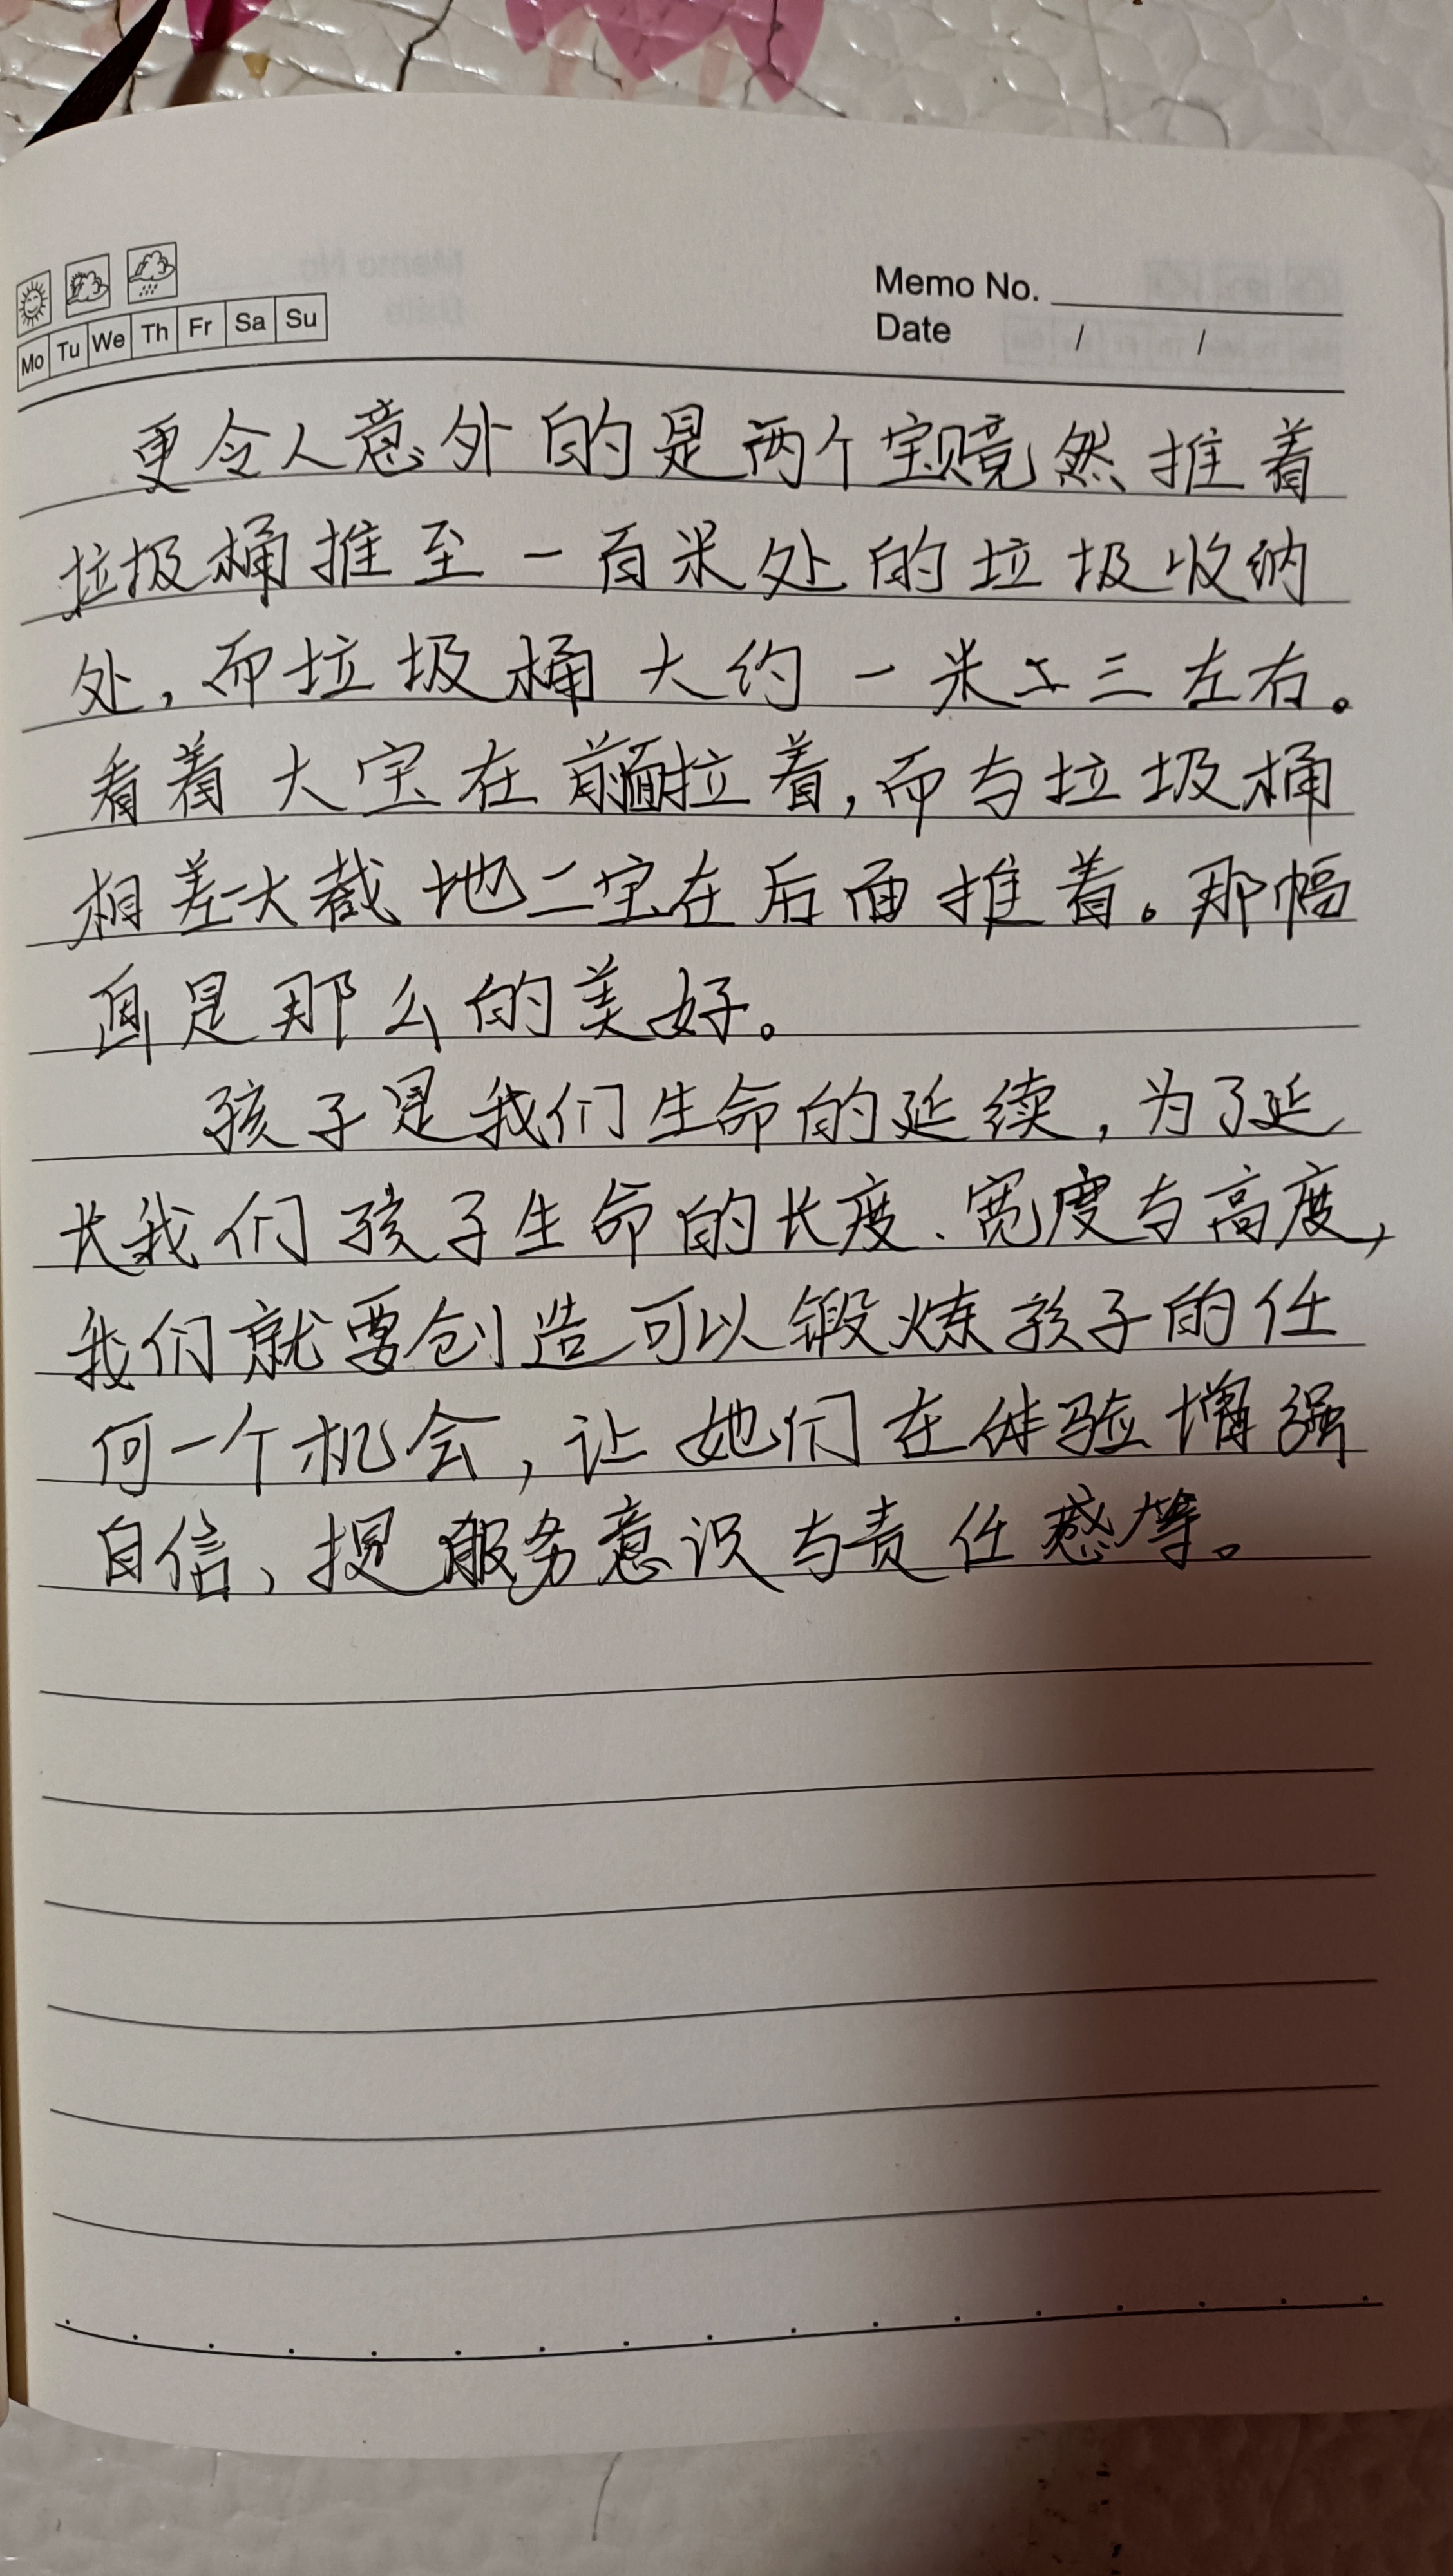 Memo No.
Mo Tu We Th Fr Sa Su
Date / /
更令人意外的是两个宝贝竟然推着
垃圾桶推至一百米处的垃圾收纳
处,而垃圾桶大约一米二三左右。
看着大宝在前面拉着,而与垃圾桶
相差一大截地二宝在后面推着。那幅
画是那么的美好。
孩子是我们生命的延续,为了延
长我们孩子生命的长度、宽度与高度,
我们就要创造可以锻炼孩子的任
何一个机会,让她们在体验增强
自信、提服务意识与责任感等。